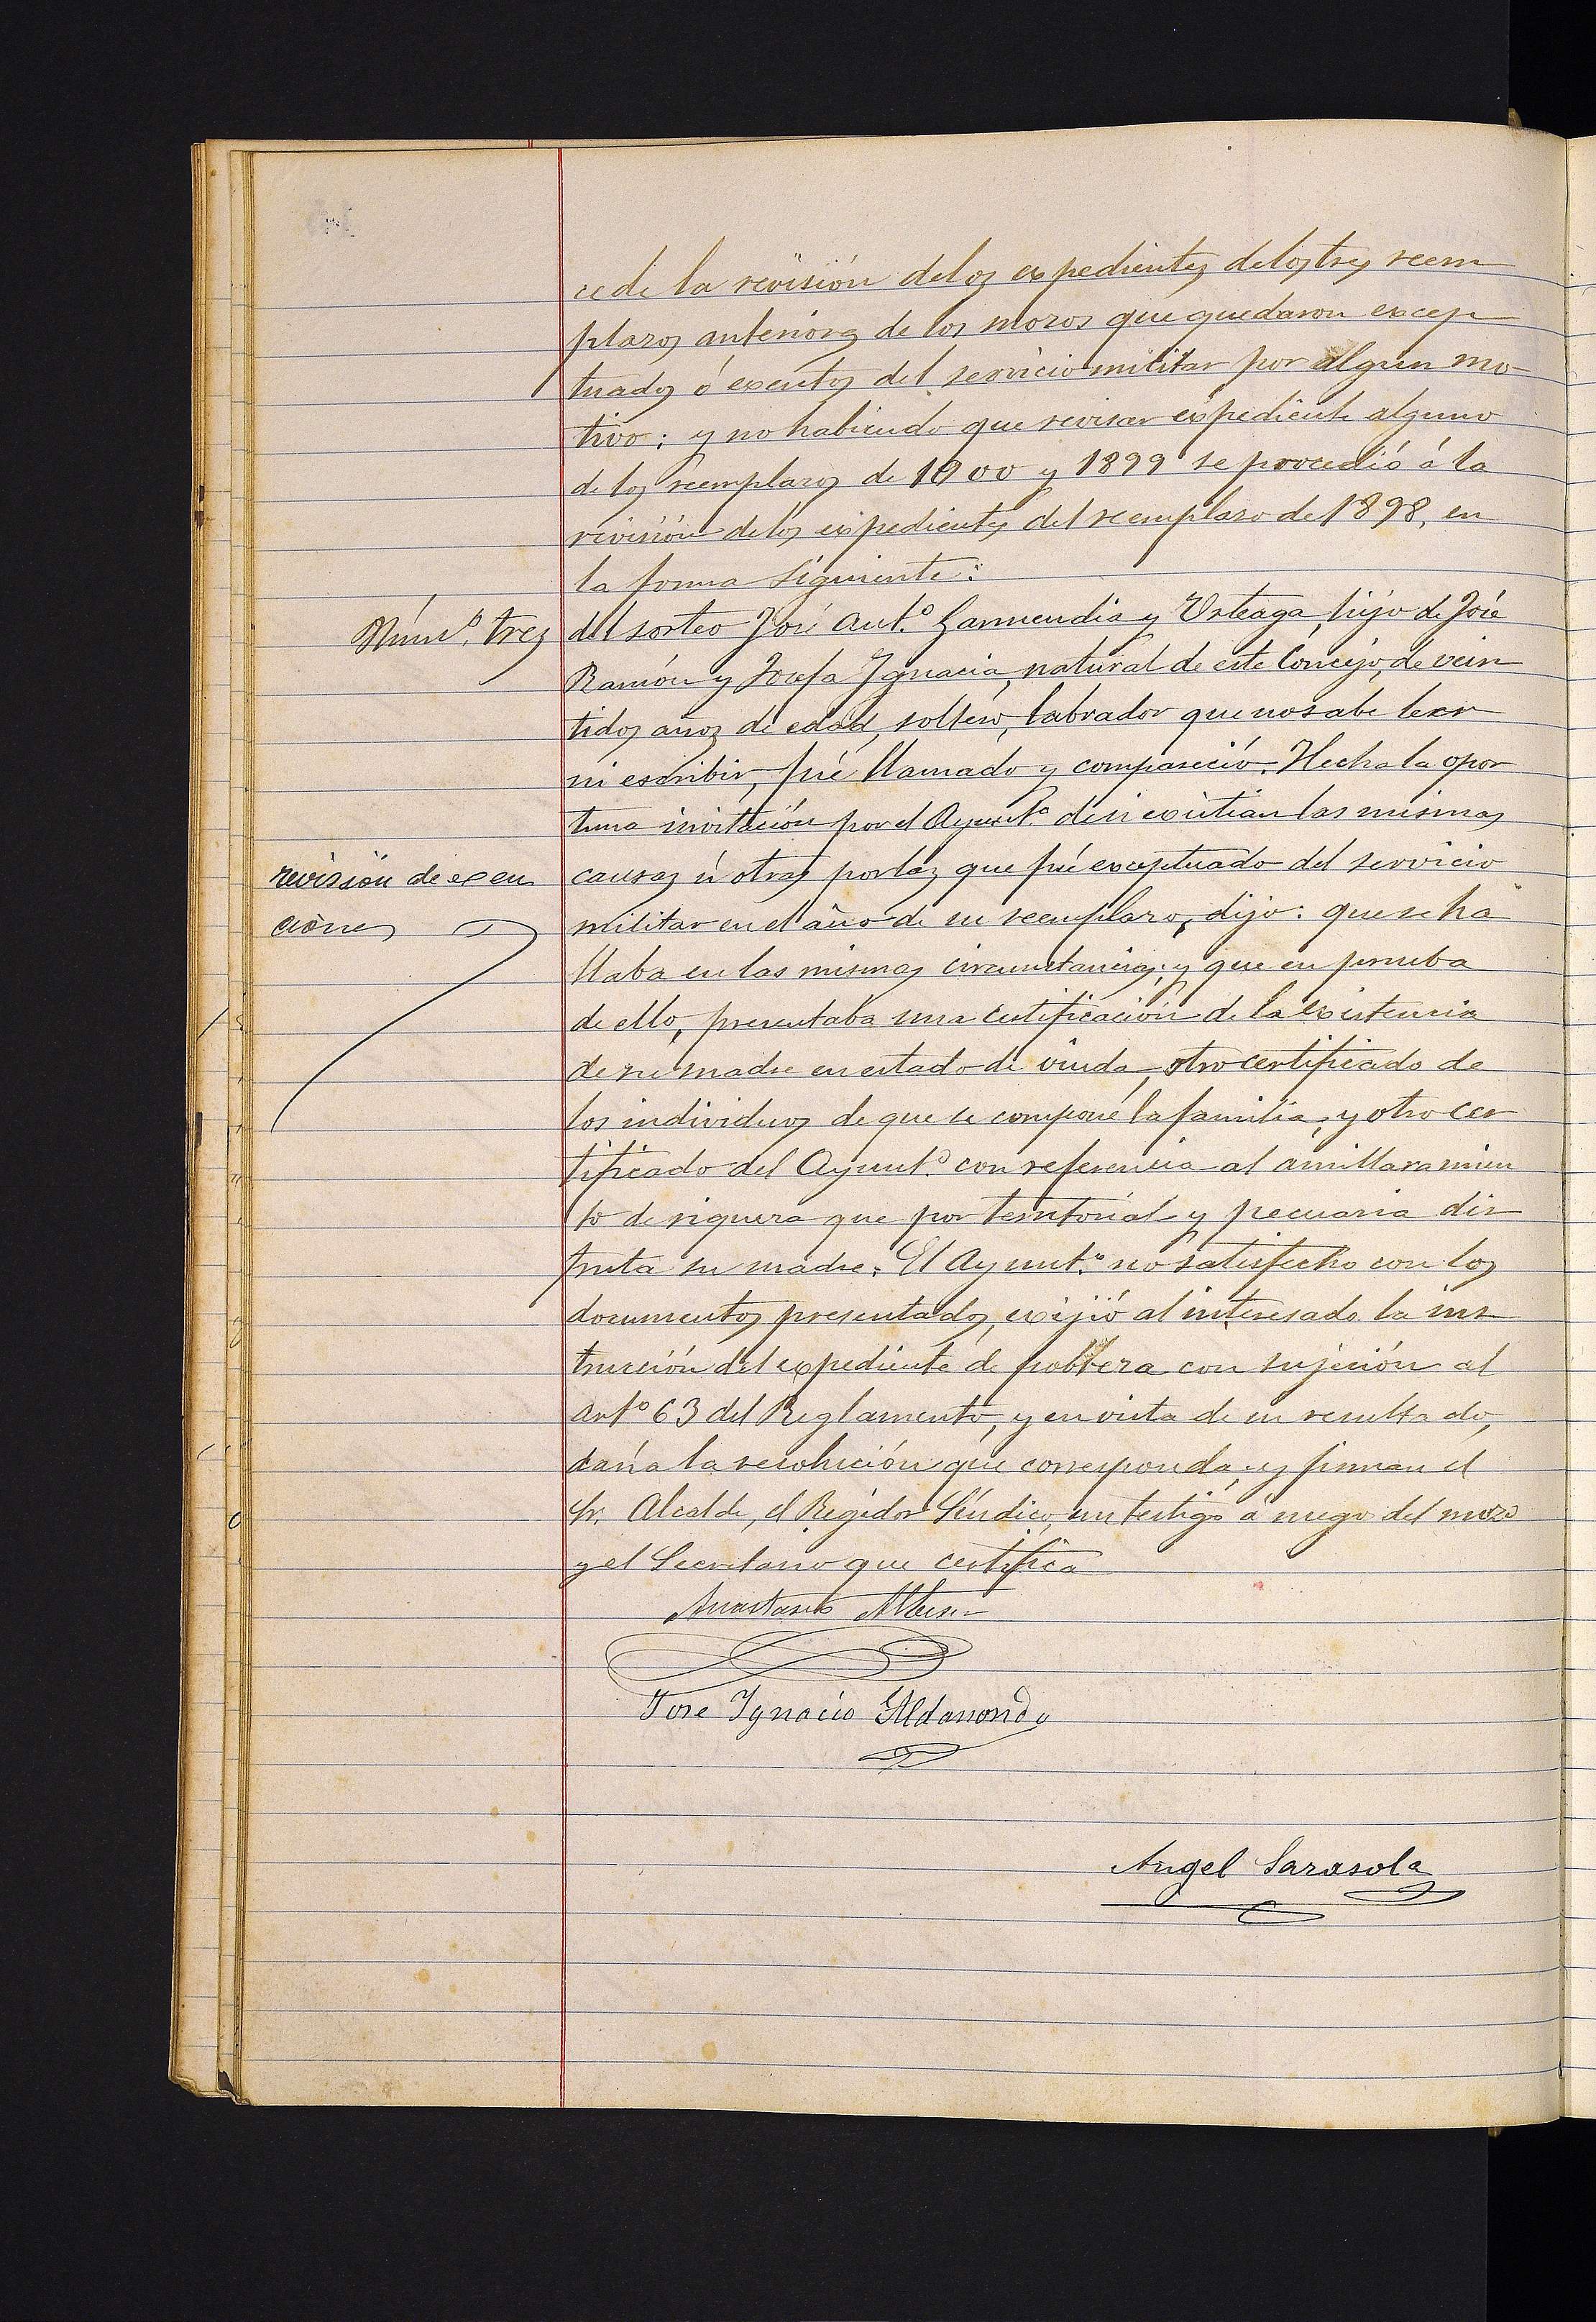 ce de la revisión de los expedientes de los tres reem
plazos anteriores de los mozos que quedaron excep
tuados ó exentos del servicio militar por algun mo-
tivo; y no habiendo que revisar expediente alguno
de los reemplazos de 1900 y 1899 se procedió á la
revisión de los expedientes del reemplazo de 1898, en
la forma siguiente:
Núm.º tres del sorteo José Ant.º Garmendia y Urteaga, hijo de José
Ramón y Josefa Ignacia, natural de este Concejo, de vein
tidos años de edad, soltero, labrador que no sabe leer
ni escribir, fué llamado y compareció. Hecha la opor
tuna invitación por el Ayunt.º de si existian las mismas
revisión de exen causas ú otras por las que fué exceptuado del servicio
ciones militar en el año de su reemplazo, dijo: que se ha
llaba en las mismas circunstancias; y que en prueba
de ello, presentaba una certificación de la existencia
de su madre en estado de viuda, otro certificado de
los individuos de que se compone la familia, y otro cer
tificado del Ayunt.º con referencia al amillaramien
to de riqueza que por territorial y pecuaria dis
fruta su madre. El Ayunt.º no satisfecho con los
documentos presentados, exijió al interesado la ins
trucción del expediente de pobreza con sujeción al
Artº 63 del Reglamento, y en vista de su resultado,
daría la resolución que corresponda, y firman el
Sr. Alcalde, el Regidor Síndico, un testigo á ruego del mozo
y el Secretario que certifica
Anastasio
José Ignacio Aldanondo
Angel Sarasola